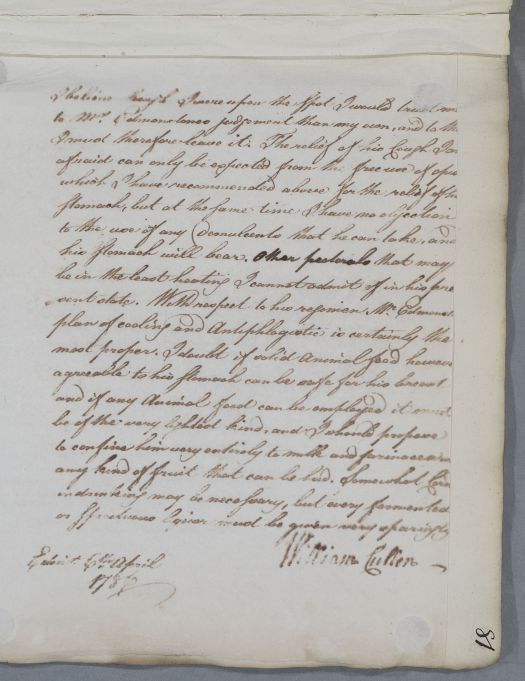 I believe though I were upon the Spot I would trust mo
to Mr. Edmonstones judgement than my own, and to th
I must therefore leave it. The relief of his Cough I am
afraid can only be expected from the free use of opi
which I have recommended above for the relief of h
Stomach, but at the same time I have no objection
to the use of any Demulcents that he can take, and
his Stomach will bear. Other pectorals that may
be in the least heating I cannot admit of in his pre
sent state. With respect to his regimen Mr. Edmons
plan of cooling and Antiphlogistic is certainly the
most proper. I doubt if solid Animal food however
agreeable to his Stomach can be safe for his breast
and if any Animal food can be employed it must
be of the very lightest kind, and I should propose
to confine him very entirely to milk and farinacea
any kind of fruit that can be had. Somewhat
in drinking may be necessary, but every fermented
or Spirituous liquor must be given very sparingly
William Cullen
Edinr. April
81